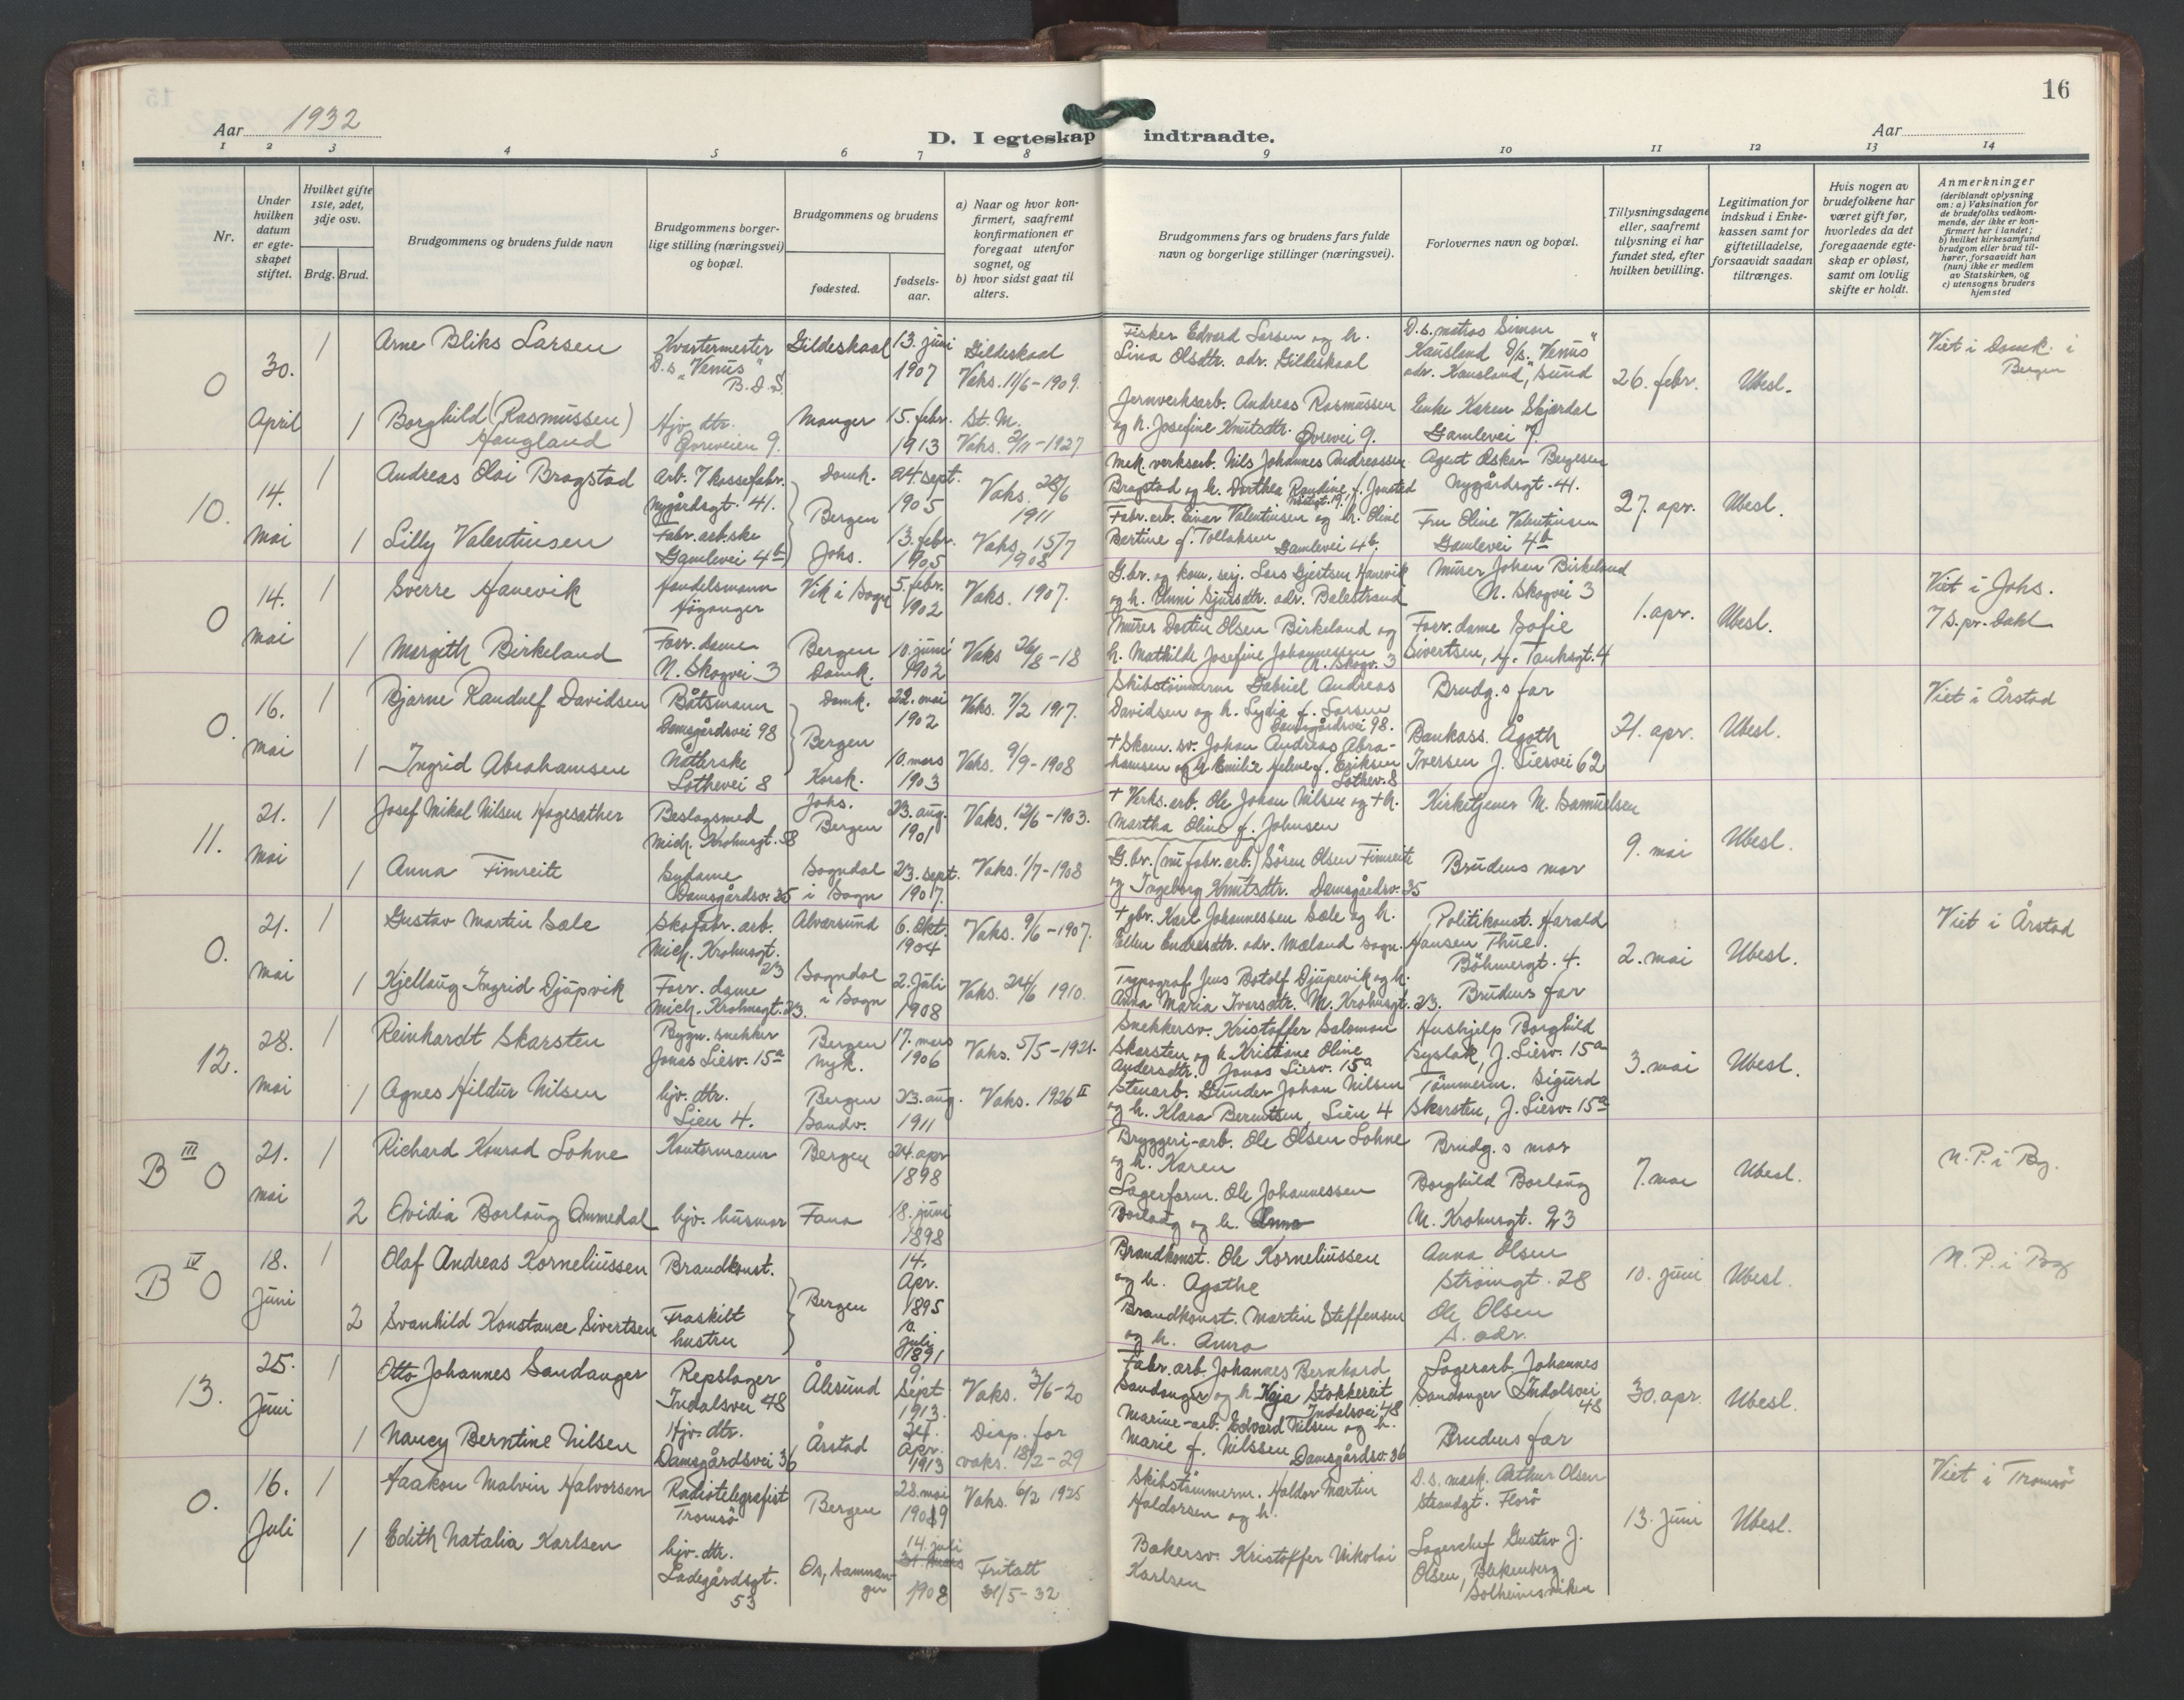 15
16
Aar 1932
D. I egteskap indtraadte.
Aar
1 2 3 4 5 6 7 8 9 10 11 12 13 14
Nr.
Under hvilken datum er egteskapet stiftet.
Hvilket gifte 1ste, 2det, 3dje osv.
Brdg. Brud.
Brudgommens og brudens fulde navn
Brudgommens borgerlige stilling (næringsvei) og bopæl.
Brudgommens og brudens
fødested.
fødselsaar.
a) Naar og hvor konfirmert, saafremt konfirmationen er foregaat utenfor sognet, og
b) hvor sidst gaat til alters.
Brudgommens fars og brudens fars fulde navn og borgerlige stillinger (næringsvei).
Forlovernes navn og bopæl.
Tillysningsdagene eller, saafremt tillysning ei har fundet sted, efter hvilken bevilling.
Legitimation for indskud i Enkekassen samt for giftetilladelse, forsaavidt saadan tiltrænges.
Hvis nogen av brudefolkene har været gift før, hvorledes da det foregaaende egteskap er opløst, samt om lovlig skifte er holdt.
Anmerkninger (deriblandt oplysning om: a) Vaksination for de brudefolks vedkommende, der ikke er konfirmert her i landet; b) hvilket kirkesamfund brudgom eller brud tilhører, forsaavidt han (hun) ikke er medlem av Statskirken, og c) utensogns bruders hjemsted
0 30. April 1 Arne Bliks Larsen Kvartermester D.s. "Venus" B.D.S. Gildeskaal 13. juni 1907 Gildeskaal Vaks. 11/6-1909. Fisker Edvard Larsen og h. Lina Olsdtr. adr. Gildeskaal D.s. matros Simon Kausland D/s. "Venus" adr. Kausland, Sund 26. febr. Ubesl. Viet i Domk. i Bergen
1 Borghild (Rasmussen) Haugland Hjv. dtr. Øvreveien 9. Manger 15. febr. 1913 St. M. Vaks. 2/11-1927 Jernverksarb. Andreas Rasmussen og h. Josefine Knutsdtr. Øvrevei 9. Enke Karen Skjærdal Gamlevei 7.
10. 14. mai 1 Andreas Olai Bragstad Arb. 7 kassefabr. Nygårdsgt. 41. Domk. Bergen 24 sept. 1905 Vaks. 28/6 1911 Mek. verksarb. Nils Johannes Andreassen Bragstad og h. Dorthea Randine f. Jonsted Agent Oskar Bergesen Nygårdsgt. 41. 27. apr. Ubesl.
1 Lilly Valentinsen Fabr. arb.ske Gamlevei 4b Johs. 13. febr. 1905 Vaks. 15/7 1908 Fabr. arb. Einar Valentinsen og h. Oline Bertine f. Tollaksen Gamlevei 4b. Fru Oline Valentinsen Gamlevei 4b
0 14. mai 1 Sverre Hanevik Handelsmann Høyanger Vik i Sogn 5. febr. 1902 Vaks. 1907. G.br. og kom. serj. Lars Gjertsen Hanevik og h. Unni Sjursdtr. adr. Balestrand Murer Johan Birkeland N. Skogvei 3 1. apr. Ubesl. Viet i Johs. 7 S.pr. Dahl
1 Margith Birkeland Forr. dame N. Skogvei 3 Bergen Domk. 10. juni 1902 Vaks 26/8-18 Murer Dortin Olsen Birkeland og h. Mathilde Josefine Johannessen N. Skogv. 3 Forr. dame Sofie Sivertsen, Tanksgt. 4
0. 16. mai 1 Bjarne Randulf Davidsen Båtsmann Damsgårdsvei 98 Domk. Bergen 22. mai 1902 Vaks. 7/2 1917. Skibstömmerm Gabriel Andreas Davidsen og h. Lydia f. Larsen Damsgårdsvei 98. Brudg.s far 21. apr. Ubesl. Viet i Årstad
1 Ingrid Abrahamsen Nätterske Lothevei 8 Korsk. 10. mars 1903 Vaks. 9/9-1908 + Skom. sv. Johan Andreas Abrahamsen og h. Emilie Helene f. Eriksen Lothev. 8 Bankass. Ågoth Iversen J. Liesvei 62
11. 21. mai 1 Josef Mikal Nilsen Hagesæther Beslagsmed Mich. Krohnsgt. 58 Johs. Bergen 23. aug. 1901 Vaks. 12/6-1903. + Verks. arb. Ole Johan Nilsen og + h. Martha Oline f. Johnsen Kirketjener M. Samuelsen 9. mai Ubesl.
1 Anna Fimreite Sydame Damsgårdsv. 35 Sogndal i Sogn 23. sept. 1907. Vaks. 1/7-1908 G.br. (nu fabr. arb.) Sören Olsen Fimreite og Ingeborg Knutsdtr. Damsgårdsv. 35 Brudens mor
0. 21. mai 1 Gustav Martin Sæle Skofabr. arb. Mich. Krohnsgt. 23 Alversund 6. Okt. 1904 Vaks. 9/6-1907. + gbr. Karl Johannessen Sæle og h. Ellen Endresdtr. adr. Mæland sogn. Politikonst. Harald Hansen Thue. Böhmergt. 4. 2. mai Ubesl. Viet i Årstad
1 Kjellaug Ingrid Djupvik Forr. dame Mich. Krohnsgt. 23. Sogndal i Sogn 2. Juli 1908 Vaks. 24/6 1910. Typograf Jens Botolf Djupevik og h. Anna Maria Iversdtr. M. Krohnsgt. 23. Brudens far
12. 28. mai 1 Reinhardt Skarsten Bygn. snekker Jonas Liesv. 15a Bergen Nyk. 17. mars 1906 Vaks. 5/5-1921. Snekkersv. Kristoffer Salomon Skarsten og h. Kristiane Oline Andersdtr. Jonas Liesv. 15a Hushjelp Borghild Systak, J. Liesv. 15a 3. mai Ubesl.
1 Agnes Hildur Nilsen hjv. dtr. Lien 4. Bergen Sandv. 23. aug. 1911 Vaks. 1926 II Stenarb. Gunder Johan Nilsen og h. Klara Berntsen, Lien 4 Tömmerm. Sigurd Skarsten, J. Liesv. 15a
B III 0 21. mai 1 Richard Konrad Lohne Kontormann Bergen 24. apr 1898 Bryggeri-arb. Ole Olsen Lohne og h. Karen Brudg.s mor 7. mai Ubesl. N.P. i Bg.
2 Ovidia Borlaug Ommedal hjv. husmor Fana 18. juni 1898 Lagerform. Ole Johannessen Borlaug og h. Anna Borghild Borlaug M. Krohnsgt. 23
B IV 0 18. juni 1 Olaf Andreas Korneliussen Brandkonst. Bergen 14. Apr. 1895 Brandkonst. Ole Korneliussen og h. Agathe Anna Olsen Strömgt. 28 10. juni Ubesl. N.P. i Bg
2 Svanhild Konstance Sivertsen Fraskilt hustru 10. juli 1891 Brandkonst. Martin Steffensen og h. Anna Ole Olsen S. adr.
13. 25. Juni 1 Otto Johannes Sandanger Repslager Indalsvei 48 Ålesund 9. Sept 1913. Vaks. 3/6-20 Fabr. arb Johannes Bernhard Sandanger og h Kaja Stokkereit Indalsvei 48 Lagerarb Johannes Sandanger Indalsvei 48 30. apr. Ubesl.
1 Nancy Berntine Nilsen Hjv. dtr. Damsgårdsvei 36 Årstad 24. Apr. 1913 Disp. for vaks. 18/2-29 Marine-arb. Edvard Nilsen og h. Marie f. Nilssen Damsgårdsv. 36 Brudens far
0. 16. Juli 1 Haakon Malvin Halvorsen Radiotelegrafist Tromsö Bergen 28. mai 1909 Vaks. 6/2 1925 Skibstömmerm. Haldor Martin Haldorsen og h. D.s. mask. Arthur Olsen Strandgt. Florö 13. juni Ubesl. Viet i Tromsö
1 Edith Natalia Karlsen hjv. dtr. Ladegårdsgt. 53 Os, Samnanger 14. juli 31. mars 1908 Fritatt 31/5-32 Bakersv. Kristoffer Nikolai Karlsen Lagerchef Gustav J. Olsen, Blekenberg, Solheimsviken